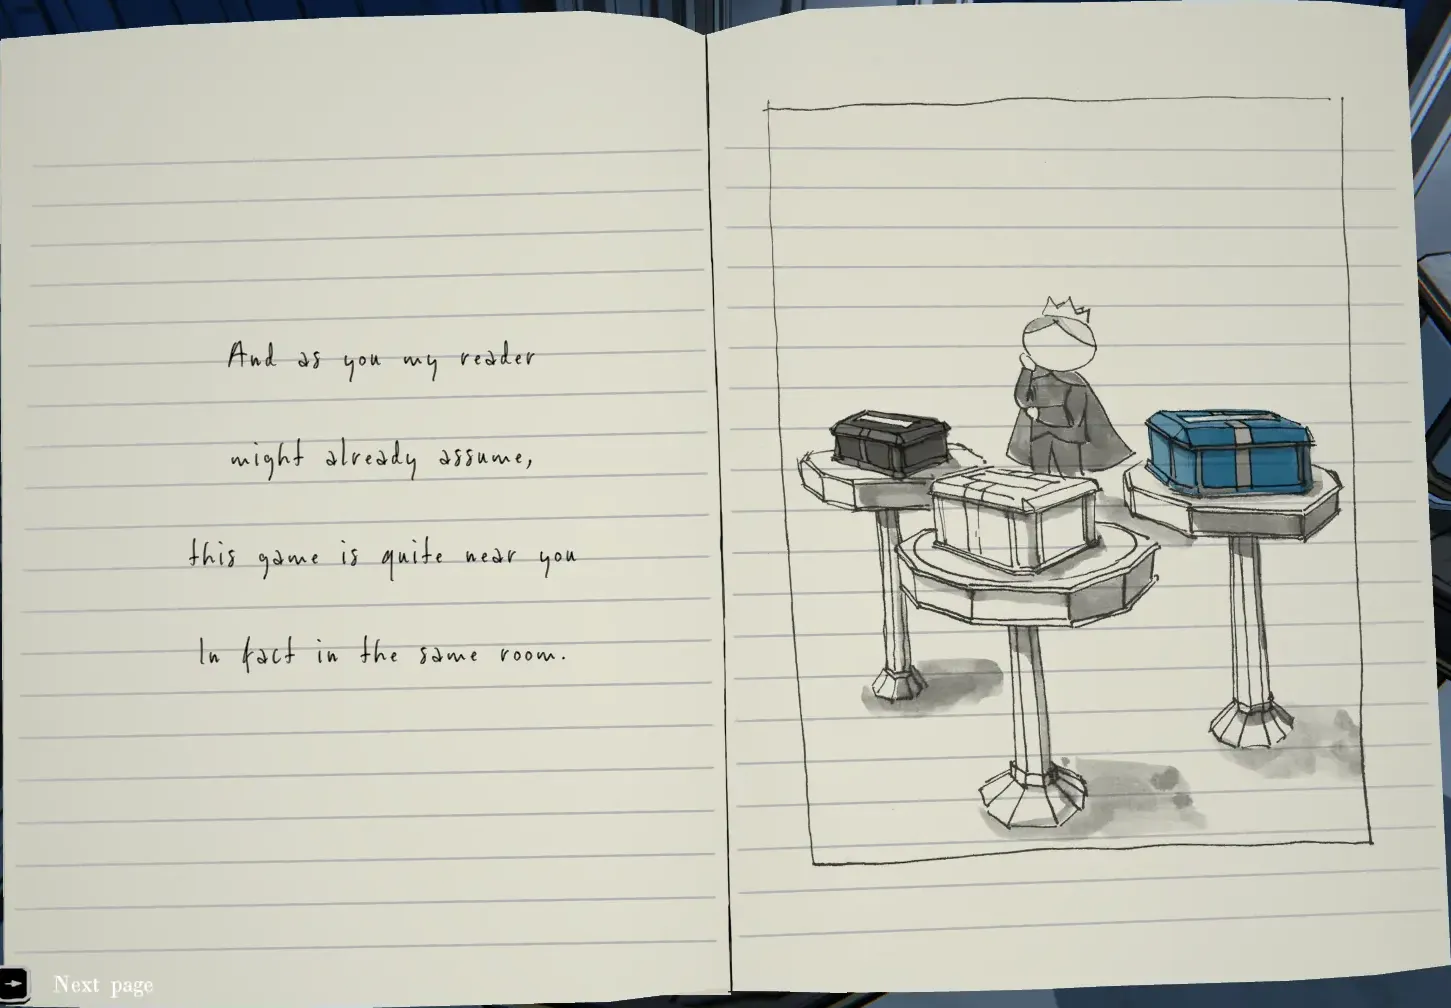 And as you my reader
might already assume,
this game is quite near you
In fact in the same room.
Next page